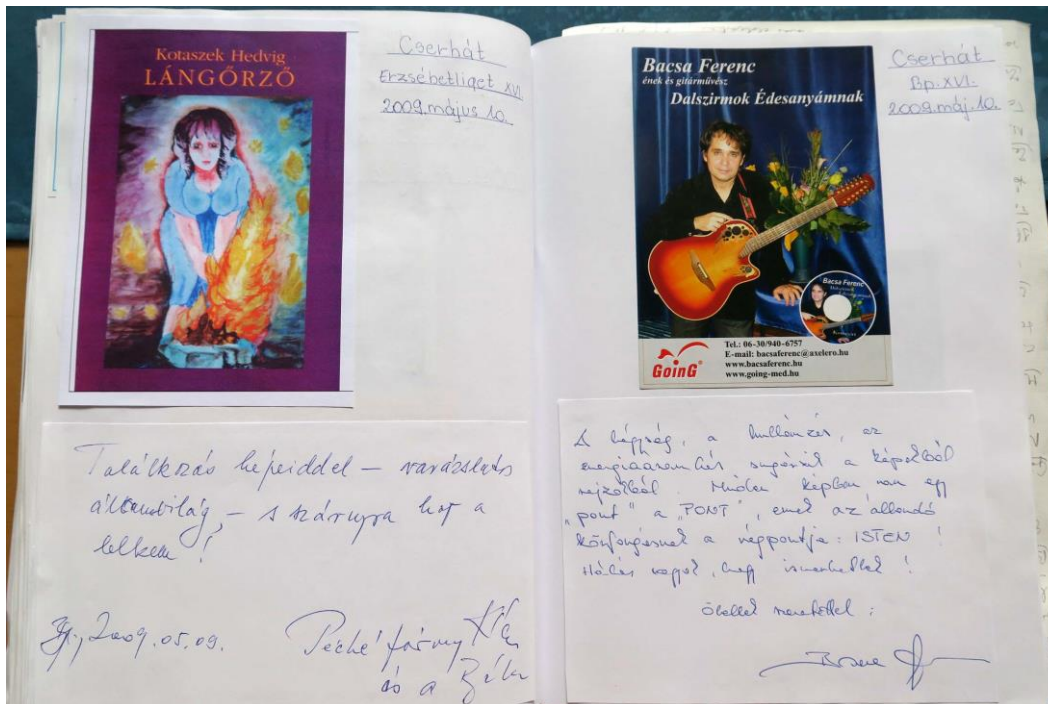 Kotaszek Hedvig
LÁNGŐRZŐ
Cserhát
Erzsébetliget XVI
2009. május 10.
Találkozás képeiddel – varázslatos
álomvilág, – s szárnyra kap a
lelkem!
2009.05.09.
és a Béla
Bacsa Ferenc
ének és gitárművész
Dalszirmok Édesanyámnak
Bacsa Ferenc
GoinG®
Tel.: 06-30/940-6757
E-mail: bacsaferenc@axelero.hu
www.bacsaferenc.hu
www.going-med.hu
Cserhát
Bp. XVI.
2009. máj. 10.
A lágyság, a hullámzás, az
energiaáramlás sugárzik a képekből
rajzokból. Minden képben van egy
„pont" a „PONT", ennek az állandó
körforgásnak a végpontja: ISTEN!
Hálás vagyok, hogy ismerhetlek!
Ölellek szeretettel: